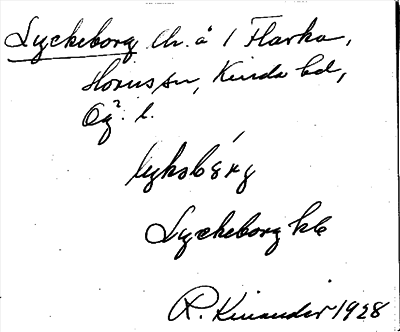 Lyckeborg lh. å 1 Flarka,
Horns sn, Kinda hd,
Ög. l.
lyksbǿrg
Lyckeborg kb
R. Kinander 1928